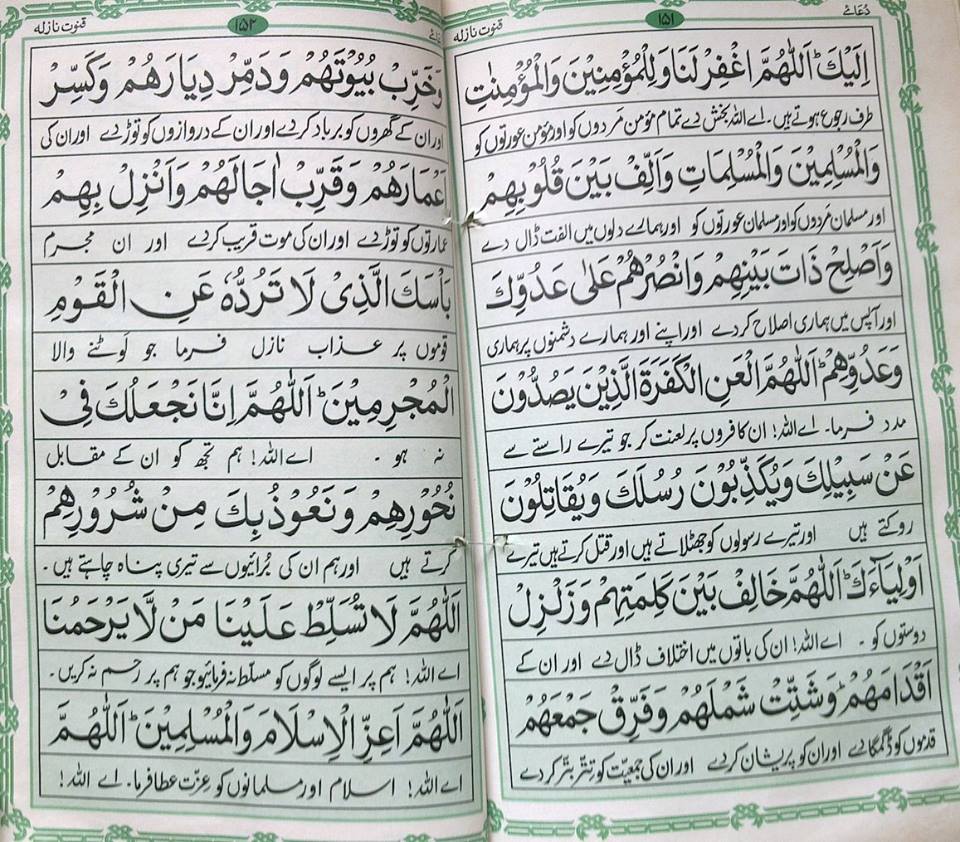 دُعائے
۱۵۱
قنوت نازلہ
اِلَيْكَ ؕ اَللّٰهُمَّ اغْفِرْ لَنَا وَلِلْمُؤْمِنِيْنَ وَالْمُؤْمِنٰتِ
طرف رجوع ہوتے ہیں۔ اے اللہ بخش دے تمام مؤمن مَردوں کو اور مؤمن عورتوں کو
وَالْمُسْلِمِيْنَ وَالْمُسْلِمَاتِ وَاَلِّفْ بَيْنَ قُلُوْبِهِمْ
اور مسلمان مَردوں کو اور مسلمان عورتوں کو اور ہمارے دلوں میں الفت ڈال دے
وَاَصْلِحْ ذَاتَ بَيْنِهِمْ وَانْصُرْهُمْ عَلٰى عَدُوِّكَ
اور آپس میں ہماری اصلاح کر دے اور اپنے اور ہمارے دشمنوں پر ہماری
وَعَدُوِّهِمْ ؕ اَللّٰهُمَّ الْعَنِ الْكَفَرَةَ الَّذِيْنَ يَصُدُّوْنَ
مدد فرما۔ اے اللہ! ان کافروں پر لعنت کر جو تیرے راستے سے
عَنْ سَبِيْلِكَ وَيُكَذِّبُوْنَ رُسُلَكَ وَيُقَاتِلُوْنَ
روکتے ہیں اور تیرے رسولوں کو جھٹلاتے ہیں اور قتل کرتے ہیں تیرے
اَوْلِيَآءَكَ ؕ اَللّٰهُمَّ خَالِفْ بَيْنَ كَلِمَتِهِمْ وَزَلْزِلْ
دوستوں کو۔ اے اللہ! ان کی باتوں میں اختلاف ڈال دے اور ان کے
اَقْدَامَهُمْ ؕ وَشَتِّتْ شَمْلَهُمْ وَفَرِّقْ جَمْعَهُمْ
قدموں کو ڈگمگا دے اور ان کو پریشان کر دے اور ان کی جمعیّت کو تِتّر بِتّر کر دے
۱۵۲
قنوت نازلہ
وَخَرِّبْ بُيُوْتَهُمْ وَدَمِّرْ دِيَارَهُمْ وَكَسِّرْ
اور ان کے گھروں کو برباد کر دے اور ان کے دروازوں کو توڑ دے اور ان کی
عْمَارَهُمْ وَقَرِّبْ اٰجَالَهُمْ وَاَنْزِلْ بِهِمْ
عمارتوں کو توڑ دے اور ان کی موت قریب کر دے اور ان مجرم
بَاْسَكَ الَّذِيْ لَا تَرُدُّهٗ عَنِ الْقَوْمِ
قوموں پر عذاب نازل فرما جو لَوٹنے والا
الْمُجْرِمِيْنَ ؕ اَللّٰهُمَّ اِنَّا نَجْعَلُكَ فِيْ
نہ ہو۔ اے اللہ! ہم تجھ کو ان کے مقابل
نُحُوْرِهِمْ وَنَعُوْذُ بِكَ مِنْ شُرُوْرِهِمْ
کرتے ہیں اور ہم ان کی بُرائیوں سے تیری پناہ چاہتے ہیں۔
اَللّٰهُمَّ لَا تُسَلِّطْ عَلَيْنَا مَنْ لَّا يَرْحَمُنَا
اے اللہ! ہم پر ایسے لوگوں کو مسلّط نہ فرمائیو جو ہم پر رحم نہ کریں۔
اَللّٰهُمَّ اَعِزِّ الْاِسْلَامَ وَالْمُسْلِمِيْنَ ؕ اَللّٰهُمَّ
اے اللہ! اسلام اور مسلمانوں کو عِزّت عطا فرما۔ اے اللہ!